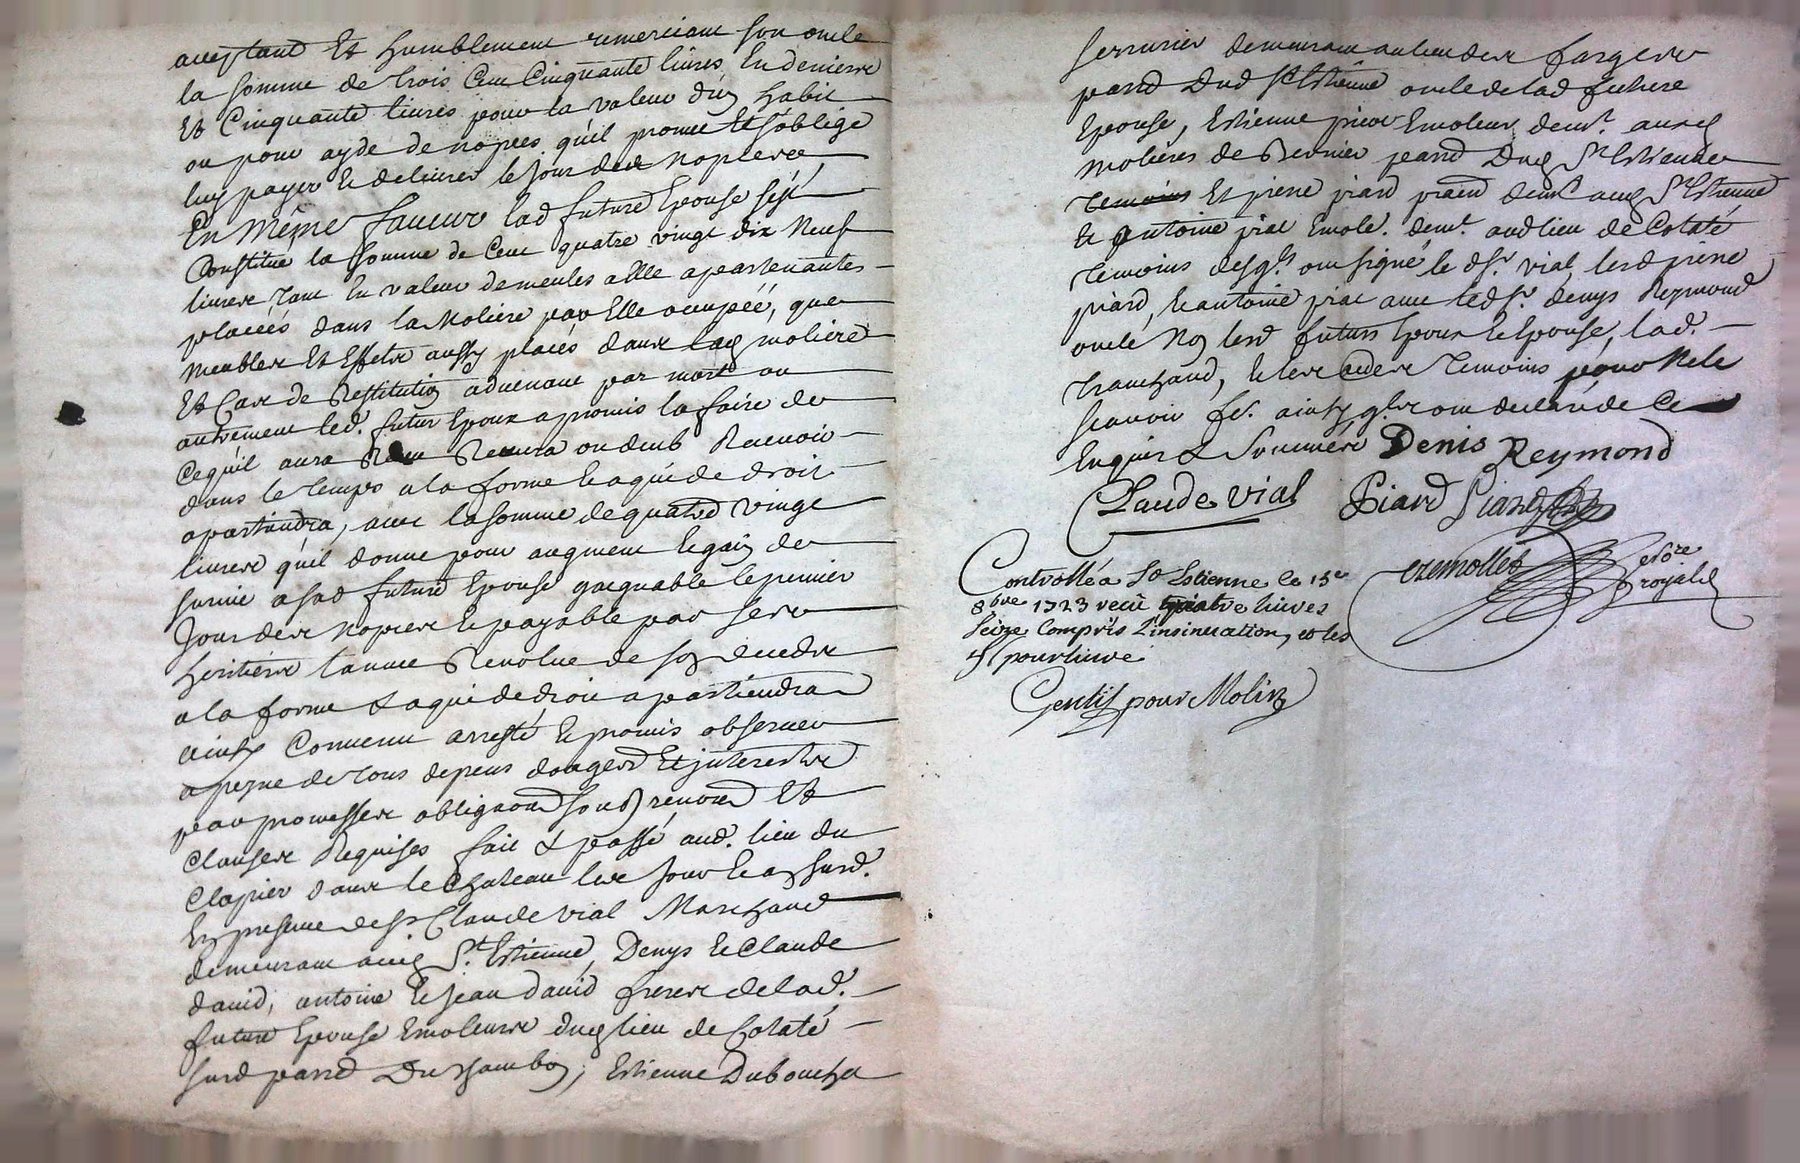 acceptant Et humblement remerciant son oncle
la somme de trois Cent Cinquante livres En deniers
Et Cinquante livres pour la valeur d'un habit
ou pour ayde de nopces qu'il promet Et s'oblige
luy payer & delivrer le jour des nopces
En même faveur lad future Epouse s'est
Constitué la somme de Cent quatre vingt dix Neuf
livres tant En valeur de meules a Elle apartenantes
placéés dans la Moliere par Elle occupéé, que
meubles Et Effets aussy placés dans moliere
Et Cas de Restitution advenant par mort ou
autrement led. futur Epoux a promis la faire de
ce qu'il aura Receu ou deub Recevoir
dans le temps a la forme & a qui de droit
apartiendra, avec la somme de quatre vingt
livres qu'il donne pour augment & gain de
survie a sad future Epouse gagnable le premier
Jour des nopces & payable par ses
heritiers l'année Revolue de son decedx
a la forme & a qui de droit apartiendra
ainsy Convenu arresté & promis observer
a peyne de tous depens domges Et interests
par promesses obligaons soubz renoncs Et
Clauses Requises fait & passé aud. lieu du
Clapier dans le Chateau les jour & an susd.
En presence de Sr Claude vial Marchand
demeurant aud St. Estienne, Denys & Claude
david, antoine & Jean david freres de lad.
future Epouse Emoleurs dud lieu de Cotaté
susd parre Du Chambon, Estienne Duboucha
serrurier demeurant au lieu des forges
parre Dud St Estienne oncle de lad future
Epouse, Estienne prieur Emoleur demt. aux
molieres de parre Dud St
temoins Et pierre piard praen demt aud St Estienne
& antoine piat Emole. demt. aud lieu de Cotaté
temoins desqls ont signé le dt Sr. vial, lesd pierre
piard, & antoine piat avec led Sr. denys Reymond
oncle Non lesd futurs Epoux & Epouse, lad.
tranchand, & les temoins pour Ne le
scavoir fe. ainsy qls ont declaré de Ce
Enquis & Sommés Denis Reymond
Claude vial Piard Piard
Controllé a St Estienne le 15e
8bre 1723 receu quatre livres
seize Compris L'insinuation, et les
4s pour livre
nore
royal
Gentil pour Molin